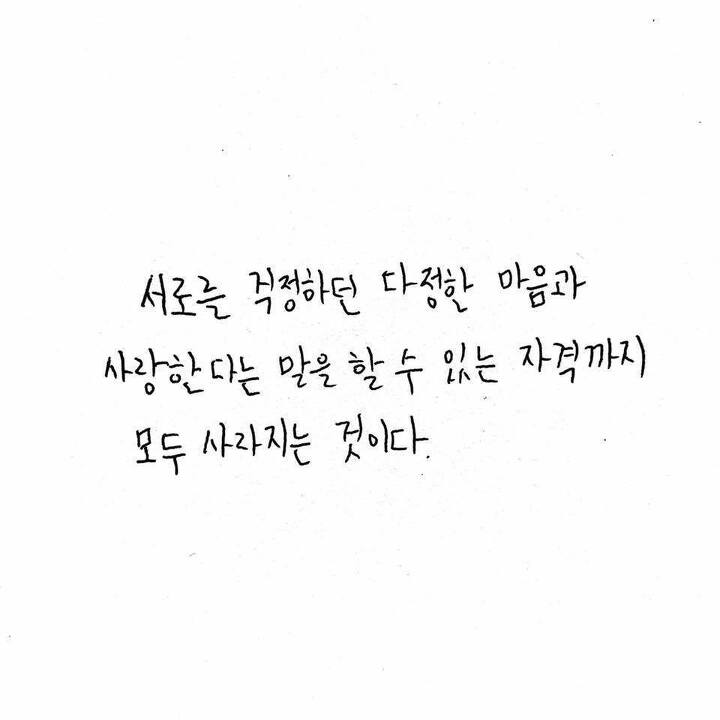 서로를 걱정하던 다정한 마음과
사랑한다는 말을 할 수 있는 자격까지
모두 사라지는 것이다.